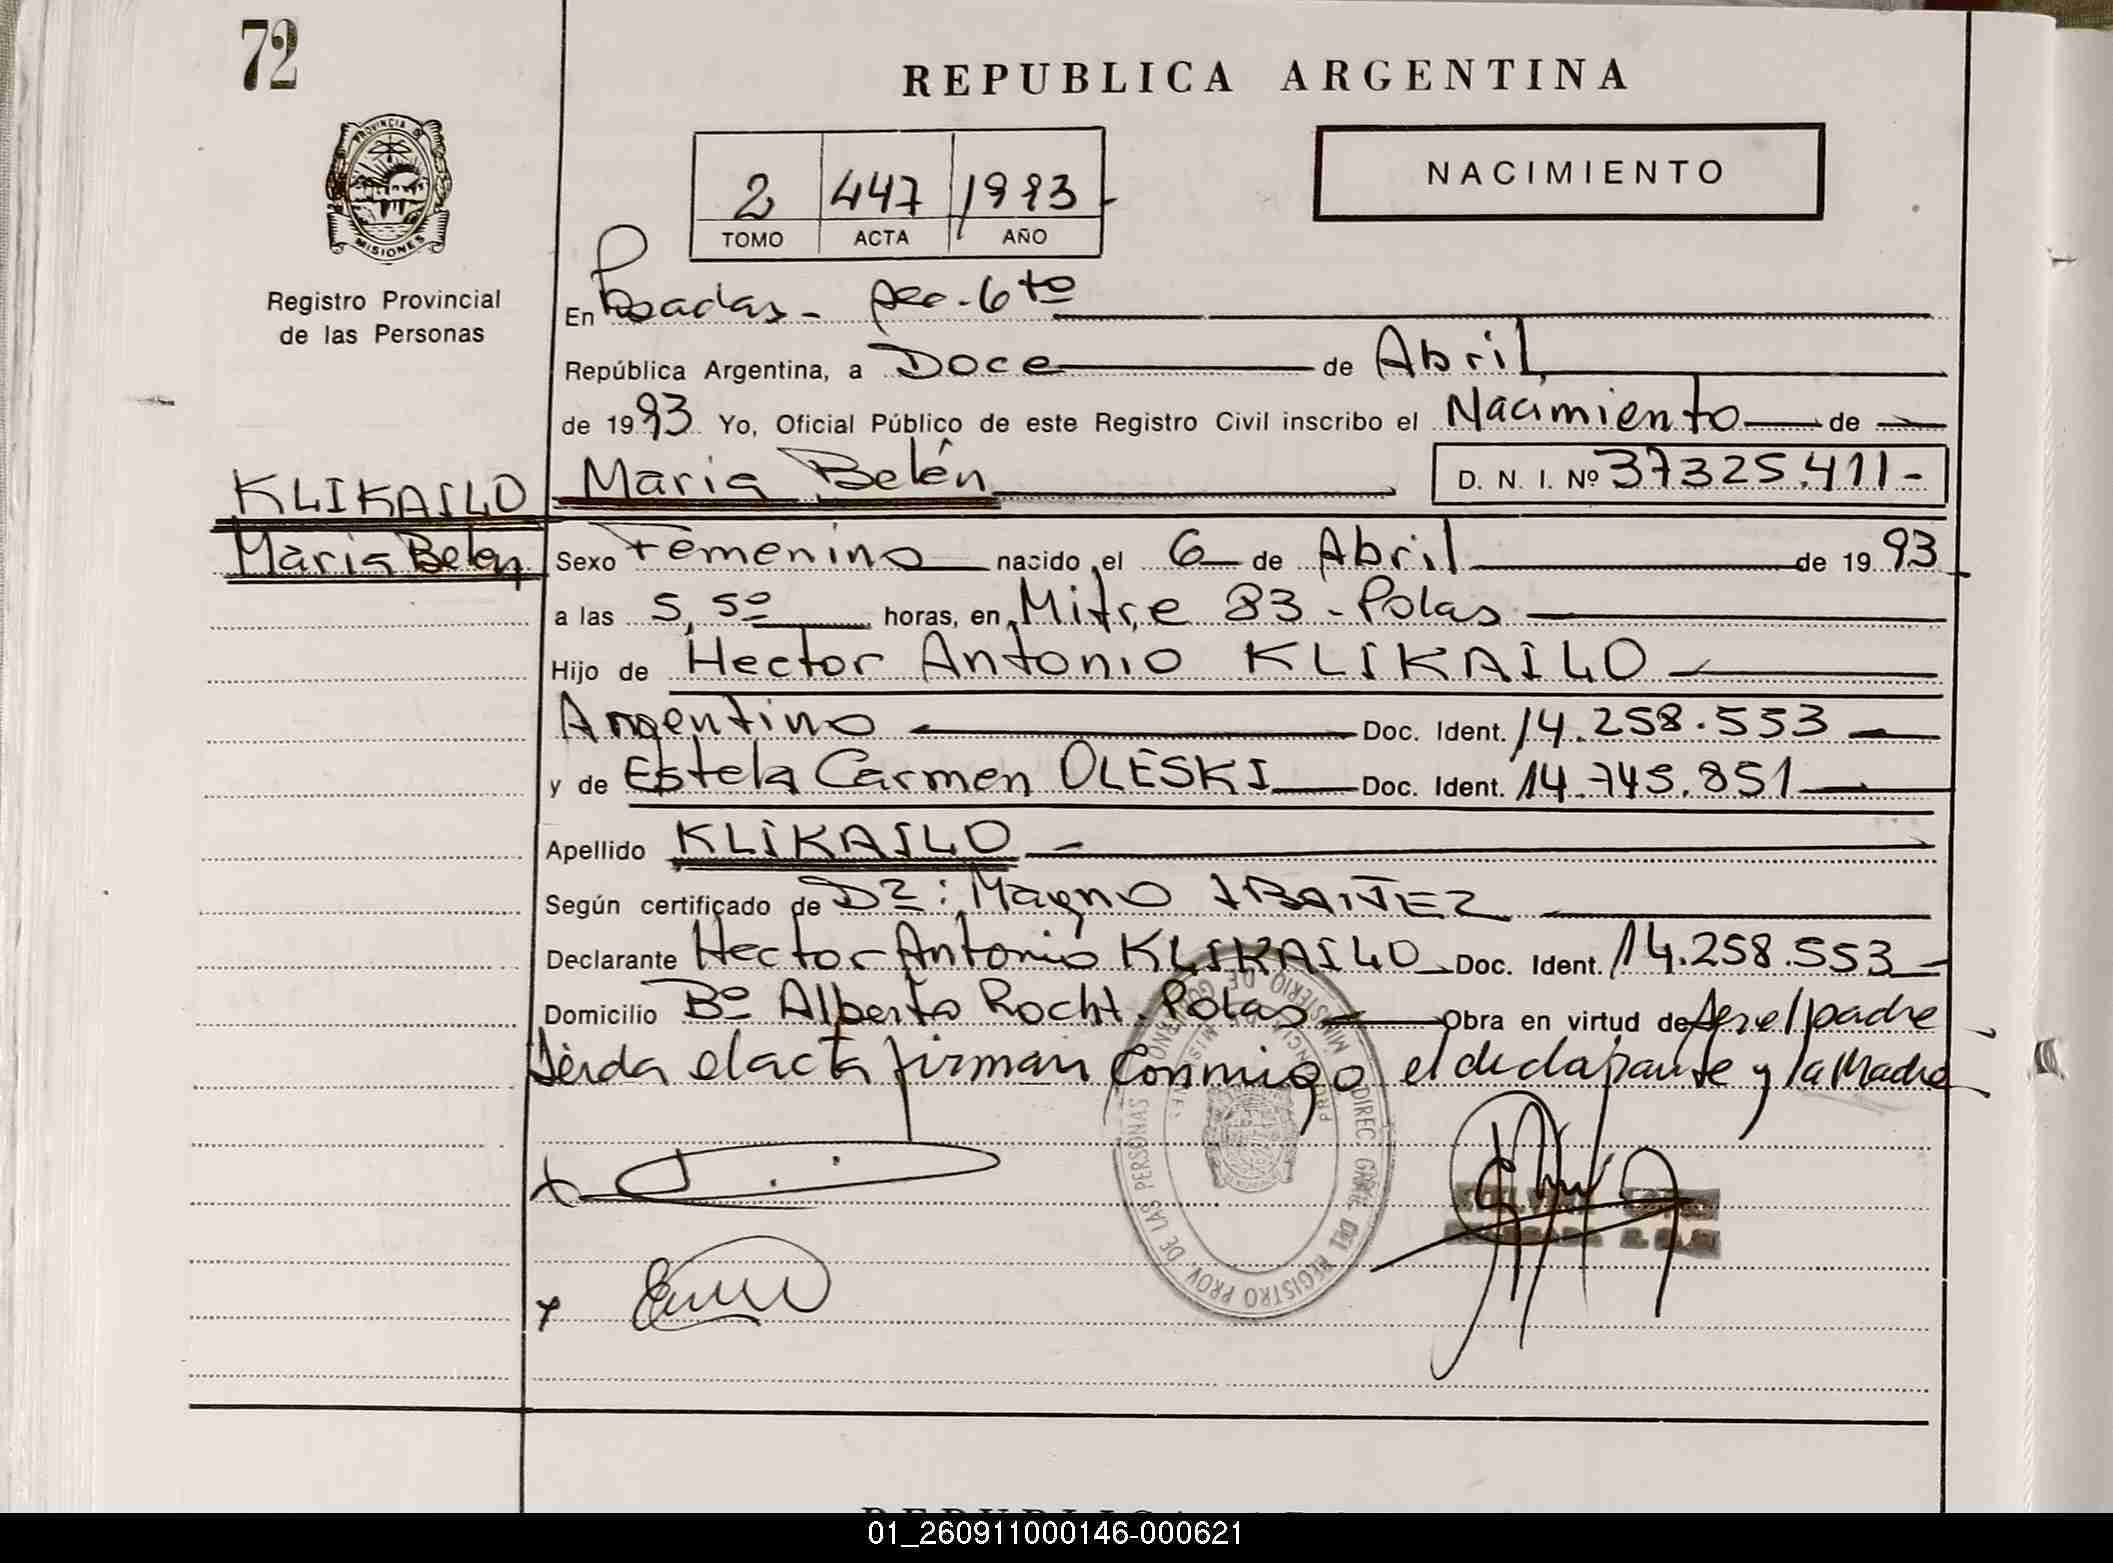 72
REPUBLICA ARGENTINA
PROVINCIA DE
MISIONES
NACIMIENTO
2 447 1993
TOMO ACTA AÑO
Registro Provincial
de las Personas
En Posadas - Sec. 6to
República Argentina, a Doce de Abril
de 1993 Yo, Oficial Público de este Registro Civil inscribo el Nacimiento de
KLIKAILO
Maria Belen
Maria Belén D. N. I. Nº 37325.411-
Sexo Femenino nacido el 6 de Abril de 1993
a las 5,50 horas, en Mitre 83 - Pdas
Hijo de Hector Antonio KLIKAILO
Argentino Doc. Ident. 14.258.553
y de Estela Carmen OLESKI Doc. Ident. 14.745.851
Apellido KLIKAILO
Según certificado de Dr: Magno IBAÑEZ
Declarante Hector Antonio KLIKAILO Doc. Ident. 14.258.553
Domicilio Bº Alberto Rocht. Pdas Obra en virtud de ser el padre
Leida el acta firman conmigo el declarante y la Madre
MINISTERIO DE GOBIERNO
DIREC. GRAL. DEL REGISTRO PROV. DE LAS PERSONAS
01_260911000146-000621